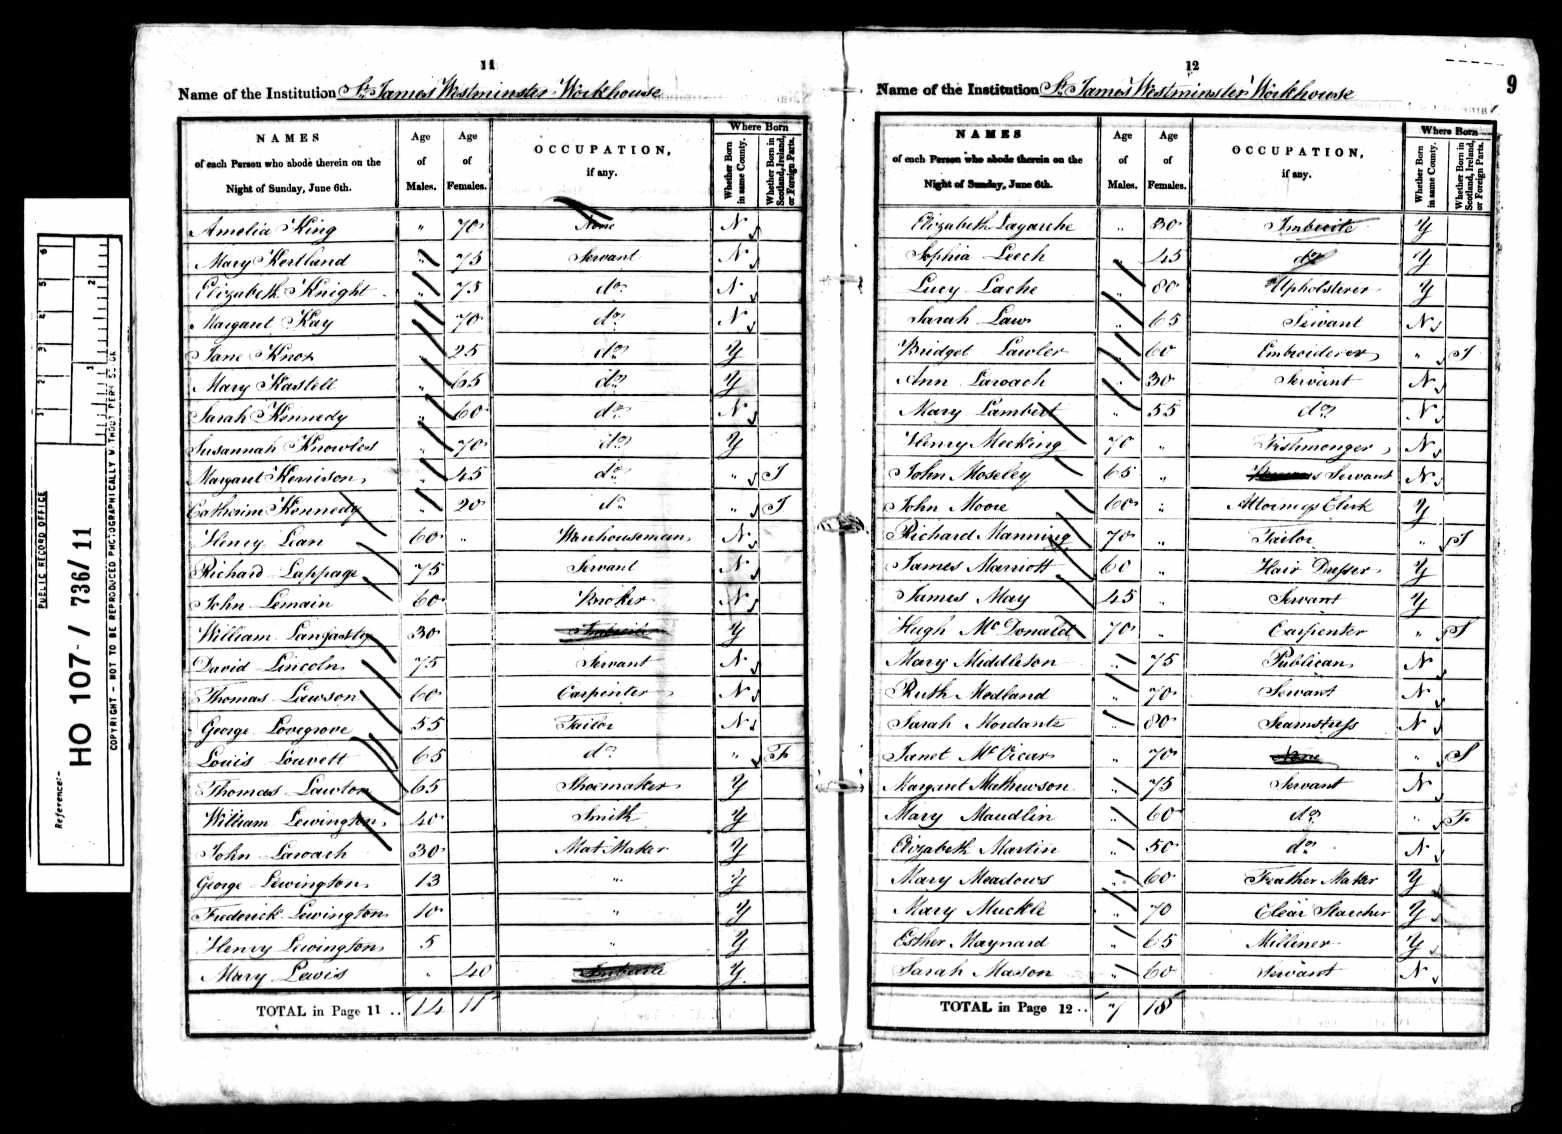 11
Name of the Institution St. James Westminster Workhouse
NAMES of each Person who abode therein on the Night of Sunday, June 6th. | Age of Males. | Age of Females. | OCCUPATION, if any. | Where Born | Whether Born in same County. | Whether Born in Scotland, Ireland, or Foreign Parts.
Amelia King " 70 None N
Mary Kertland " 75 Servant N
Elizabeth Knight " 75 do N
Margaret Kay " 70 do N
Jane Knox " 25 do Y
Mary Kastell " 65 do Y
Sarah Kennedy " 60 do N
Susannah Knowles " 70 do Y
Margaret Kerrison " 45 do " I
Catherine Kennedy " 20 do " I
Henry Lean 60 " Warehouseman N
Richard Lappage 75 Servant N
John Lemain 60 Broker N
William Langastey 30 Imbecile Y
David Lincoln 75 Servant N
Thomas Lawson 60 Carpenter N
George Lovegrove 55 Tailor N
Louis Louvett 65 do " F
Thomas Lawton 65 Shoemaker Y
William Lewington 40 Smith Y
John Laroach 30 Mat Maker Y
George Lewington 13 " Y
Frederick Lewington 10 " Y
Henry Lewington 5 " Y
Mary Lewis " 40 Imbecile Y
TOTAL in Page 11 .. 14 11
12
9
Name of the Institution St. James Westminster Workhouse
NAMES of each Person who abode therein on the Night of Sunday, June 6th. | Age of Males. | Age of Females. | OCCUPATION, if any. | Where Born | Whether Born in same County. | Whether Born in Scotland, Ireland, or Foreign Parts.
Elizabeth Lagarche " 30 Imbecile Y
Sophia Leech " 45 do Y
Lucy Lache " 80 Upholsterer Y
Sarah Law " 65 Servant N
Bridget Lawler " 60 Embroiderer " I
Ann Laroach " 30 Servant N
Mary Lambert " 55 do N
Henry Mecking 70 " Fishmonger N
John Moseley 65 " Servant N
John Moore 60 " Attorneys Clerk Y
Richard Manning 70 " Tailor " I
James Marriott 60 " Hair Dresser Y
James May 45 " Servant Y
Hugh McDonald 70 " Carpenter " S
Mary Middleton " 75 Publican N
Ruth Medland " 70 Servant N
Sarah Mordante " 80 Seamstress N
Janet McVicar " 70 None " S
Margaret Mathewson " 75 Servant N
Mary Maudlin " 60 do " F
Elizabeth Martin " 50 do N
Mary Meadows " 60 Feather Maker Y
Mary Muckle " 70 Clear Starcher Y
Esther Maynard " 65 Milliner Y
Sarah Mason " 60 Servant N
TOTAL in Page 12 .. 7 18
PUBLIC RECORD OFFICE
Reference:- HO 107 / 736/11
COPYRIGHT - NOT TO BE REPRODUCED PHOTOGRAPHICALLY WITHOUT PERMISSION